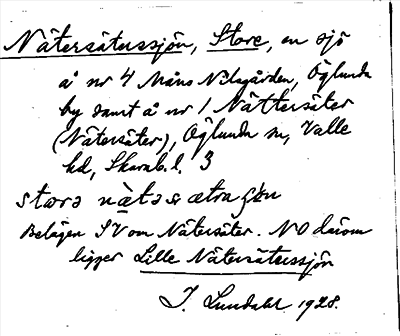 Nätersätussjön, Store, en sjö
å nr 4 Måns Nilsgården, Öglunda
by samt å nr 1 Nättersäter
(Nätersäter), Öglunda sn, Valle
hd, Skarab. l. 3
Belägen SV om Nätersäter. NO därom
ligger Lille Nätersätussjön
J. Lundahl 1928.